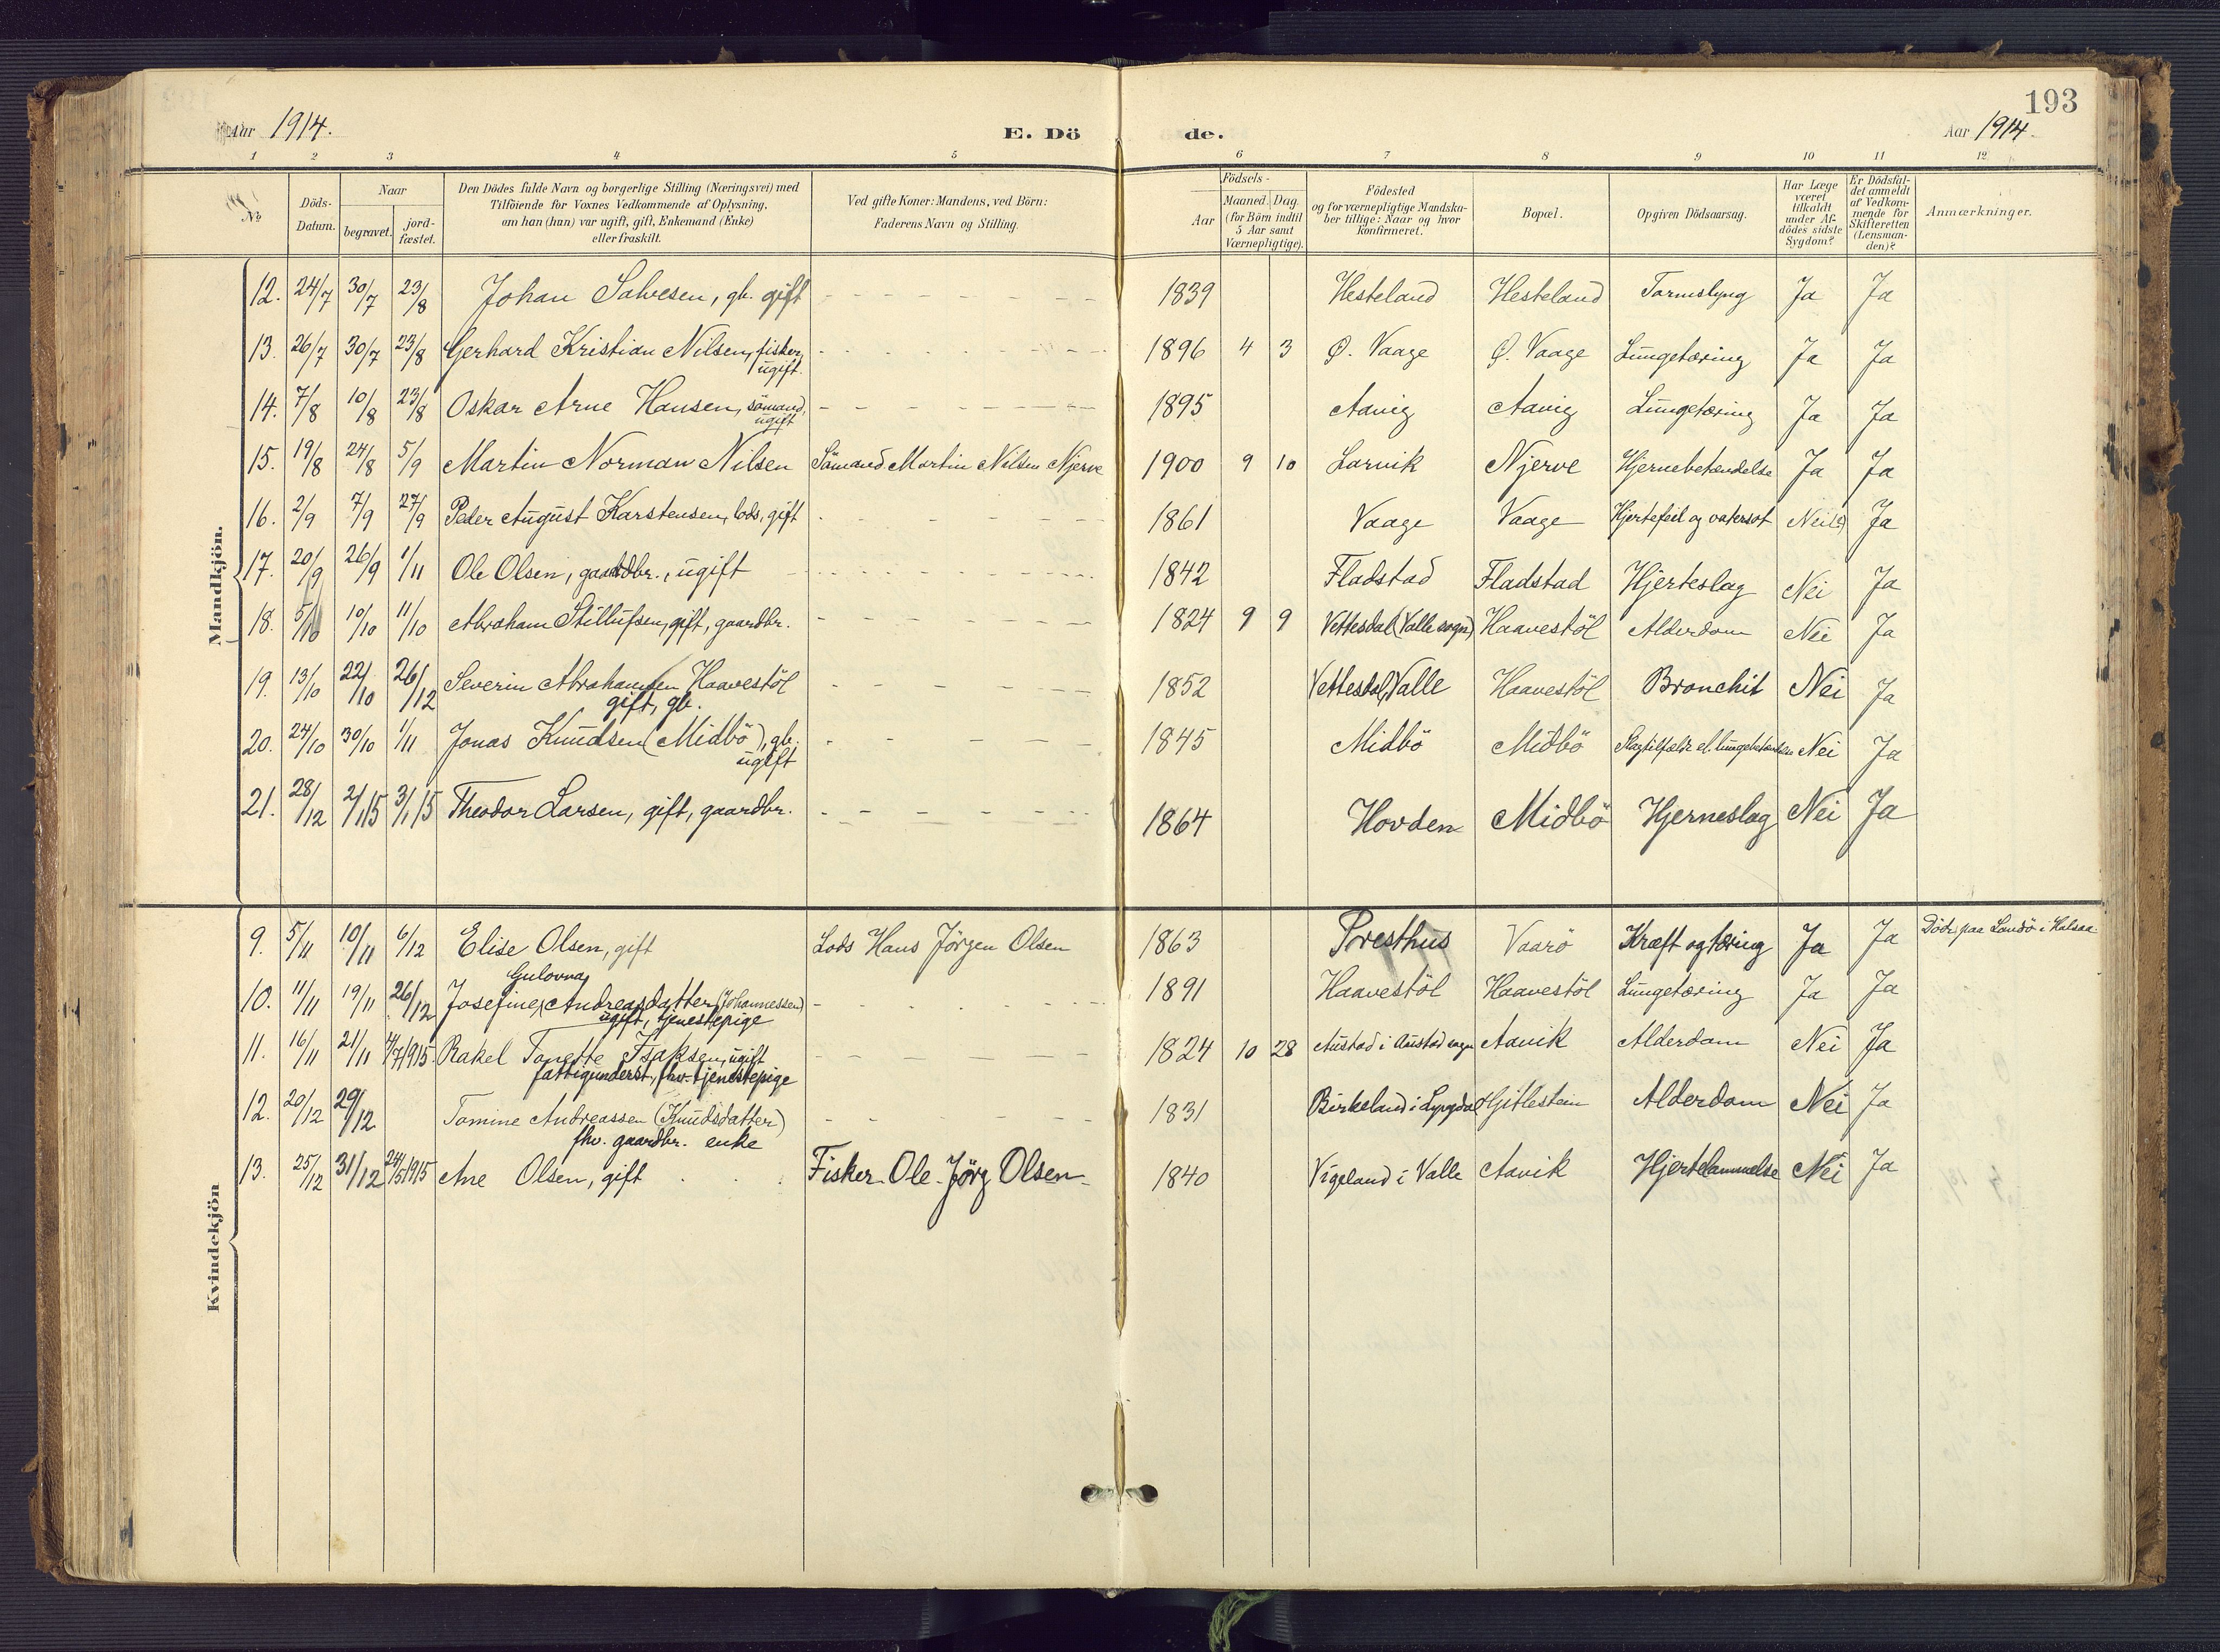 193
Aar 1914. E. Dö de. Aar 1914.
1 2 3 4 5 6 7 8 9 10 11 12
No Döds-Datum. Naar begravet. jordfæstet.
Den Dödes fulde Navn og borgerlige Stilling (Næringsvei) med
Tilföiende for Voxnes Vedkommende af Oplysning,
om han (hun) var ugift, gift, Enkemand (Enke)
eller fraskilt.
Ved gifte Koner: Mandens, ved Börn:
Faderens Navn og Stilling.
Födsels-
Aar Maaned. Dag.
(for Börn indtil
5 Aar samt
Værnepligtige).
Födested
og for værnepligtige Mandska-
ber tillige: Naar og hvor
konfirmeret.
Bopæl.
Opgiven Dödsaarsag.
Har Læge
været
tilkaldt
under Af-
dödes sidste
Sygdom?
Er Dödsfal-
det anmeldt
af Vedkom-
mende for
Skifteretten
(Lensman-
den)?
Anmærkninger.
Mandkjön.
12. 24/7 30/7 23/8 Johan Salvesen, gb. gift 1839 Hesteland Hesteland Tarmslyng Ja Ja
13. 26/7 30/7 23/8 Gerhard Kristian Nilsen, fisker, ugift. 1896 4 3 Ø. Vaage Ø. Vaage Lungetæring Ja Ja
14. 7/8 10/8 23/8 Oskar Arne Hansen, sömand, ugift 1895 Aavig Aavig Lungetæring Ja Ja
15. 19/8 24/8 5/9 Martin Norman Nilsen Sömand Martin Nilsen Njerve 1900 9 10 Larvik Njerve Hjernebetændelse Ja Ja
16. 2/9 7/9 27/9 Peder August Karstensen, lods, gift 1861 Vaage Vaage Hjertefeil og vatersot Nei Ja
17. 20/9 26/9 1/11 Ole Olsen, gaardbr., ugift 1842 Fladstad Fladstad Hjerteslag Nei Ja
18. 5/10 10/10 11/10 Abraham Stillufsen, gift, gaardbr. 1824 9 9 Vettesdal (Valle sogn) Haavestöl Alderdom Nei Ja
19. 13/10 22/10 26/12 Severin Abrahamsen Haavestöl gift, gb. 1852 Vettesdal, Valle Haavestöl Bronchit Nei Ja
20. 24/10 30/10 1/11 Jonas Knudsen (Midbö), gb. ugift 1845 Midbö Midbö Slagtilfælde el. lungebetændelse Nei Ja
21. 28/12 2/1 15 3/1 15 Theodor Larsen, gift, gaardbr. 1864 Hovden Midbö Hjerneslag Nei Ja
Kvindekjön
9. 5/11 10/11 6/12 Elise Olsen, gift Lods Hans Jörgen Olsen 1863 Presthus Vaarö Kræft og tæring Ja Ja Döde paa Landö i Halsaa
10. 11/11 19/11 26/12 Josefine Gulovna Andreasdatter (Johannessen) ugift, tjenestepige 1891 Haavestöl Haavestöl Lungetæring Ja Ja
11. 16/11 21/11 4/7 1915. Rakel Tonette Isaksen, ugift fattigunderst., fhv. tjenestepige 1824 10 28 Austad i Austad sogn Aavik Alderdom Nei Ja
12. 20/12 29/12 Tomine Andreassen (Knudsdatter) fhv. gaardbr. enke 1831 Birkeland i Lyngdal Gitlestein Alderdom Nei Ja
13. 25/12 31/12 24/5 1915 Ane Olsen, gift Fisker Ole Jörg Olsen 1840 Vigeland i Valle Aavik Hjertelammelse Nei Ja